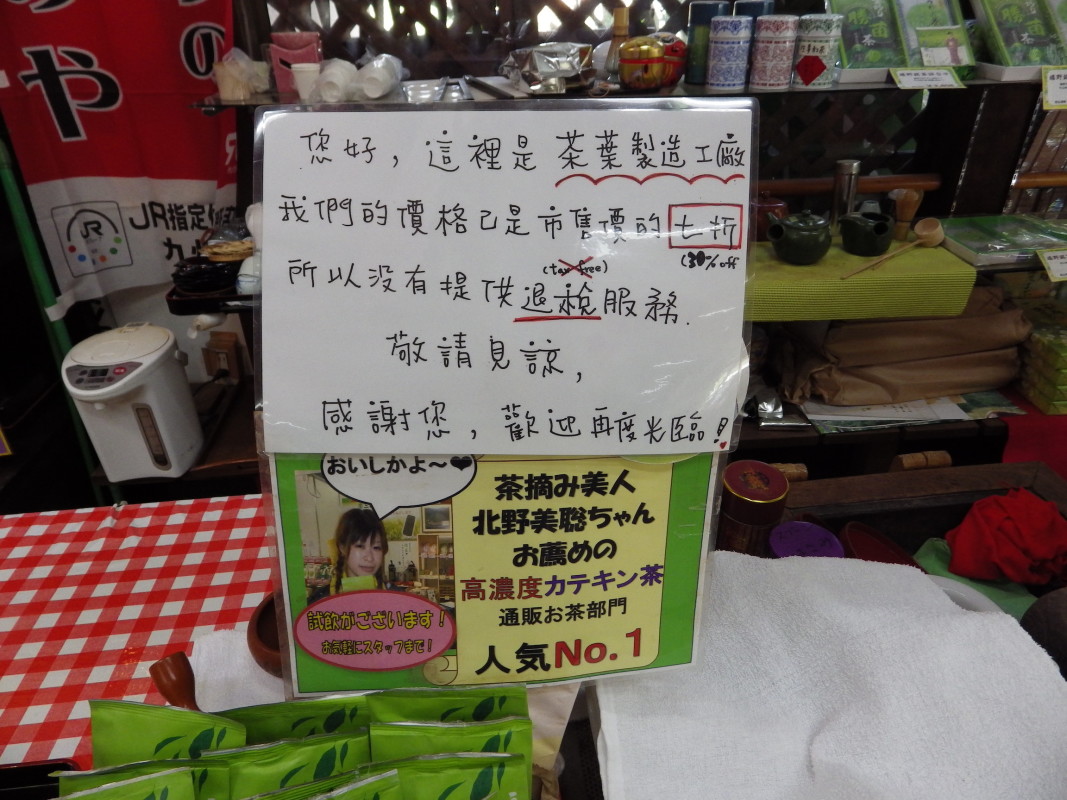 の
や
JR
JR指定
九
您好，這裡是茶葉製造工廠
我們的價格已是市售價的七折
(30% off
(tax free)
所以没有提供退稅服務.
敬請見諒，
感謝您，歡迎再度光臨！
おいしかよ～❤
茶摘み美人
北野美聡ちゃん
お薦めの
高濃度カテキン茶
通販お茶部門
人気No.1
試飲がございます！
お気軽にスタッフまで！